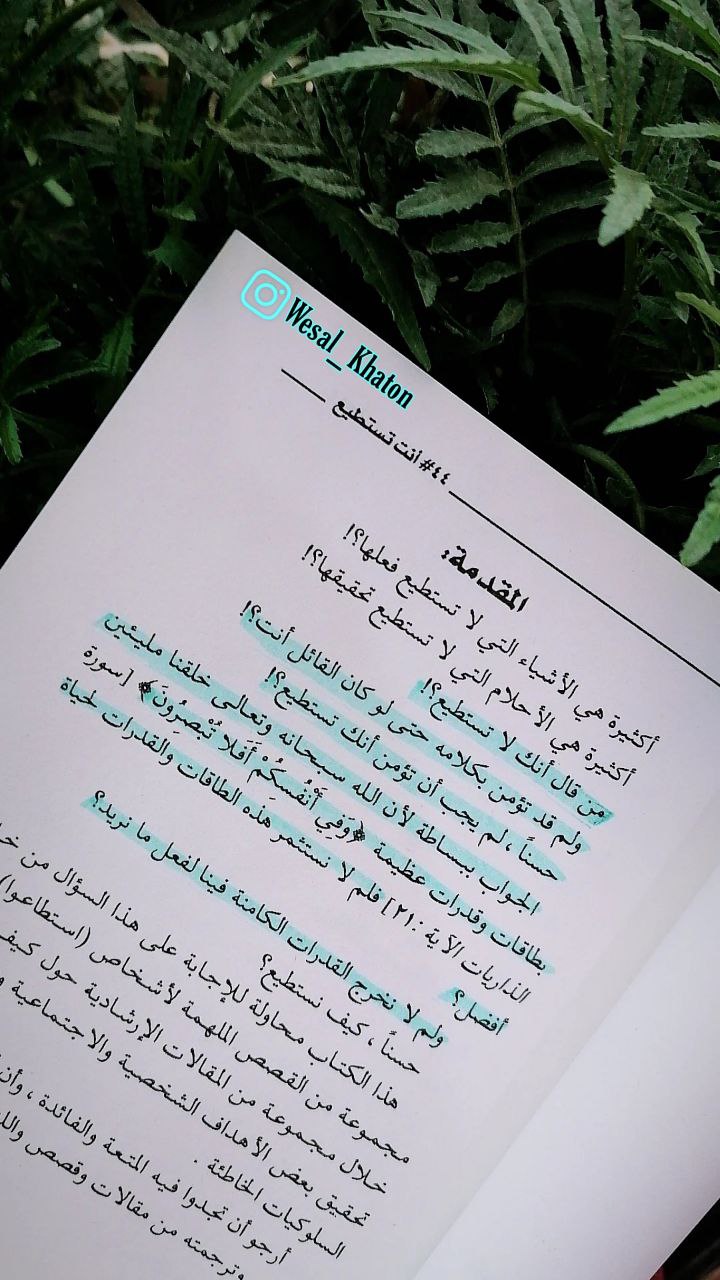 Wesal_Khaton
٤٤ #أنت تستطيع
المقدمة:
أكثيرة هي الأشياء التي لا تستطيع فعلها؟!
أكثيرة هي الأحلام التي لا تستطيع تحقيقها؟!
من قال أنك لا تستطيع؟!
ولم قد تؤمن بكلامه حتى لو كان القائل أنت؟!
حسناً ، لم يجب أن تؤمن أنك تستطيع؟!
الجواب ببساطة لأن الله سبحانه وتعالى خلقنا مليئين
بطاقات وقدرات عظيمة ﴿وَفِي أَنْفُسِكُمْ أَفَلَا تُبْصِرُونَ﴾ [سورة
الذاريات الآية :٢١] فلم لا نستثمر هذه الطاقات والقدرات لحياة
أفضل؟
ولم لا نخرج القدرات الكامنة فينا لفعل ما نريد؟
حسناً ، كيف نستطيع؟
هذا الكتاب محاولة للإجابة على هذا السؤال من
مجموعة من القصص الملهمة لأشخاص (استطاعوا)
خلال مجموعة من المقالات الإرشادية حول كيف
تحقيق بعض الأهداف الشخصية والاجتماعية
السلوكيات الخاطئة .
أرجو أن تجدوا فيه المتعة والفائدة ، وأن
وترجمته من مقالات وقصص